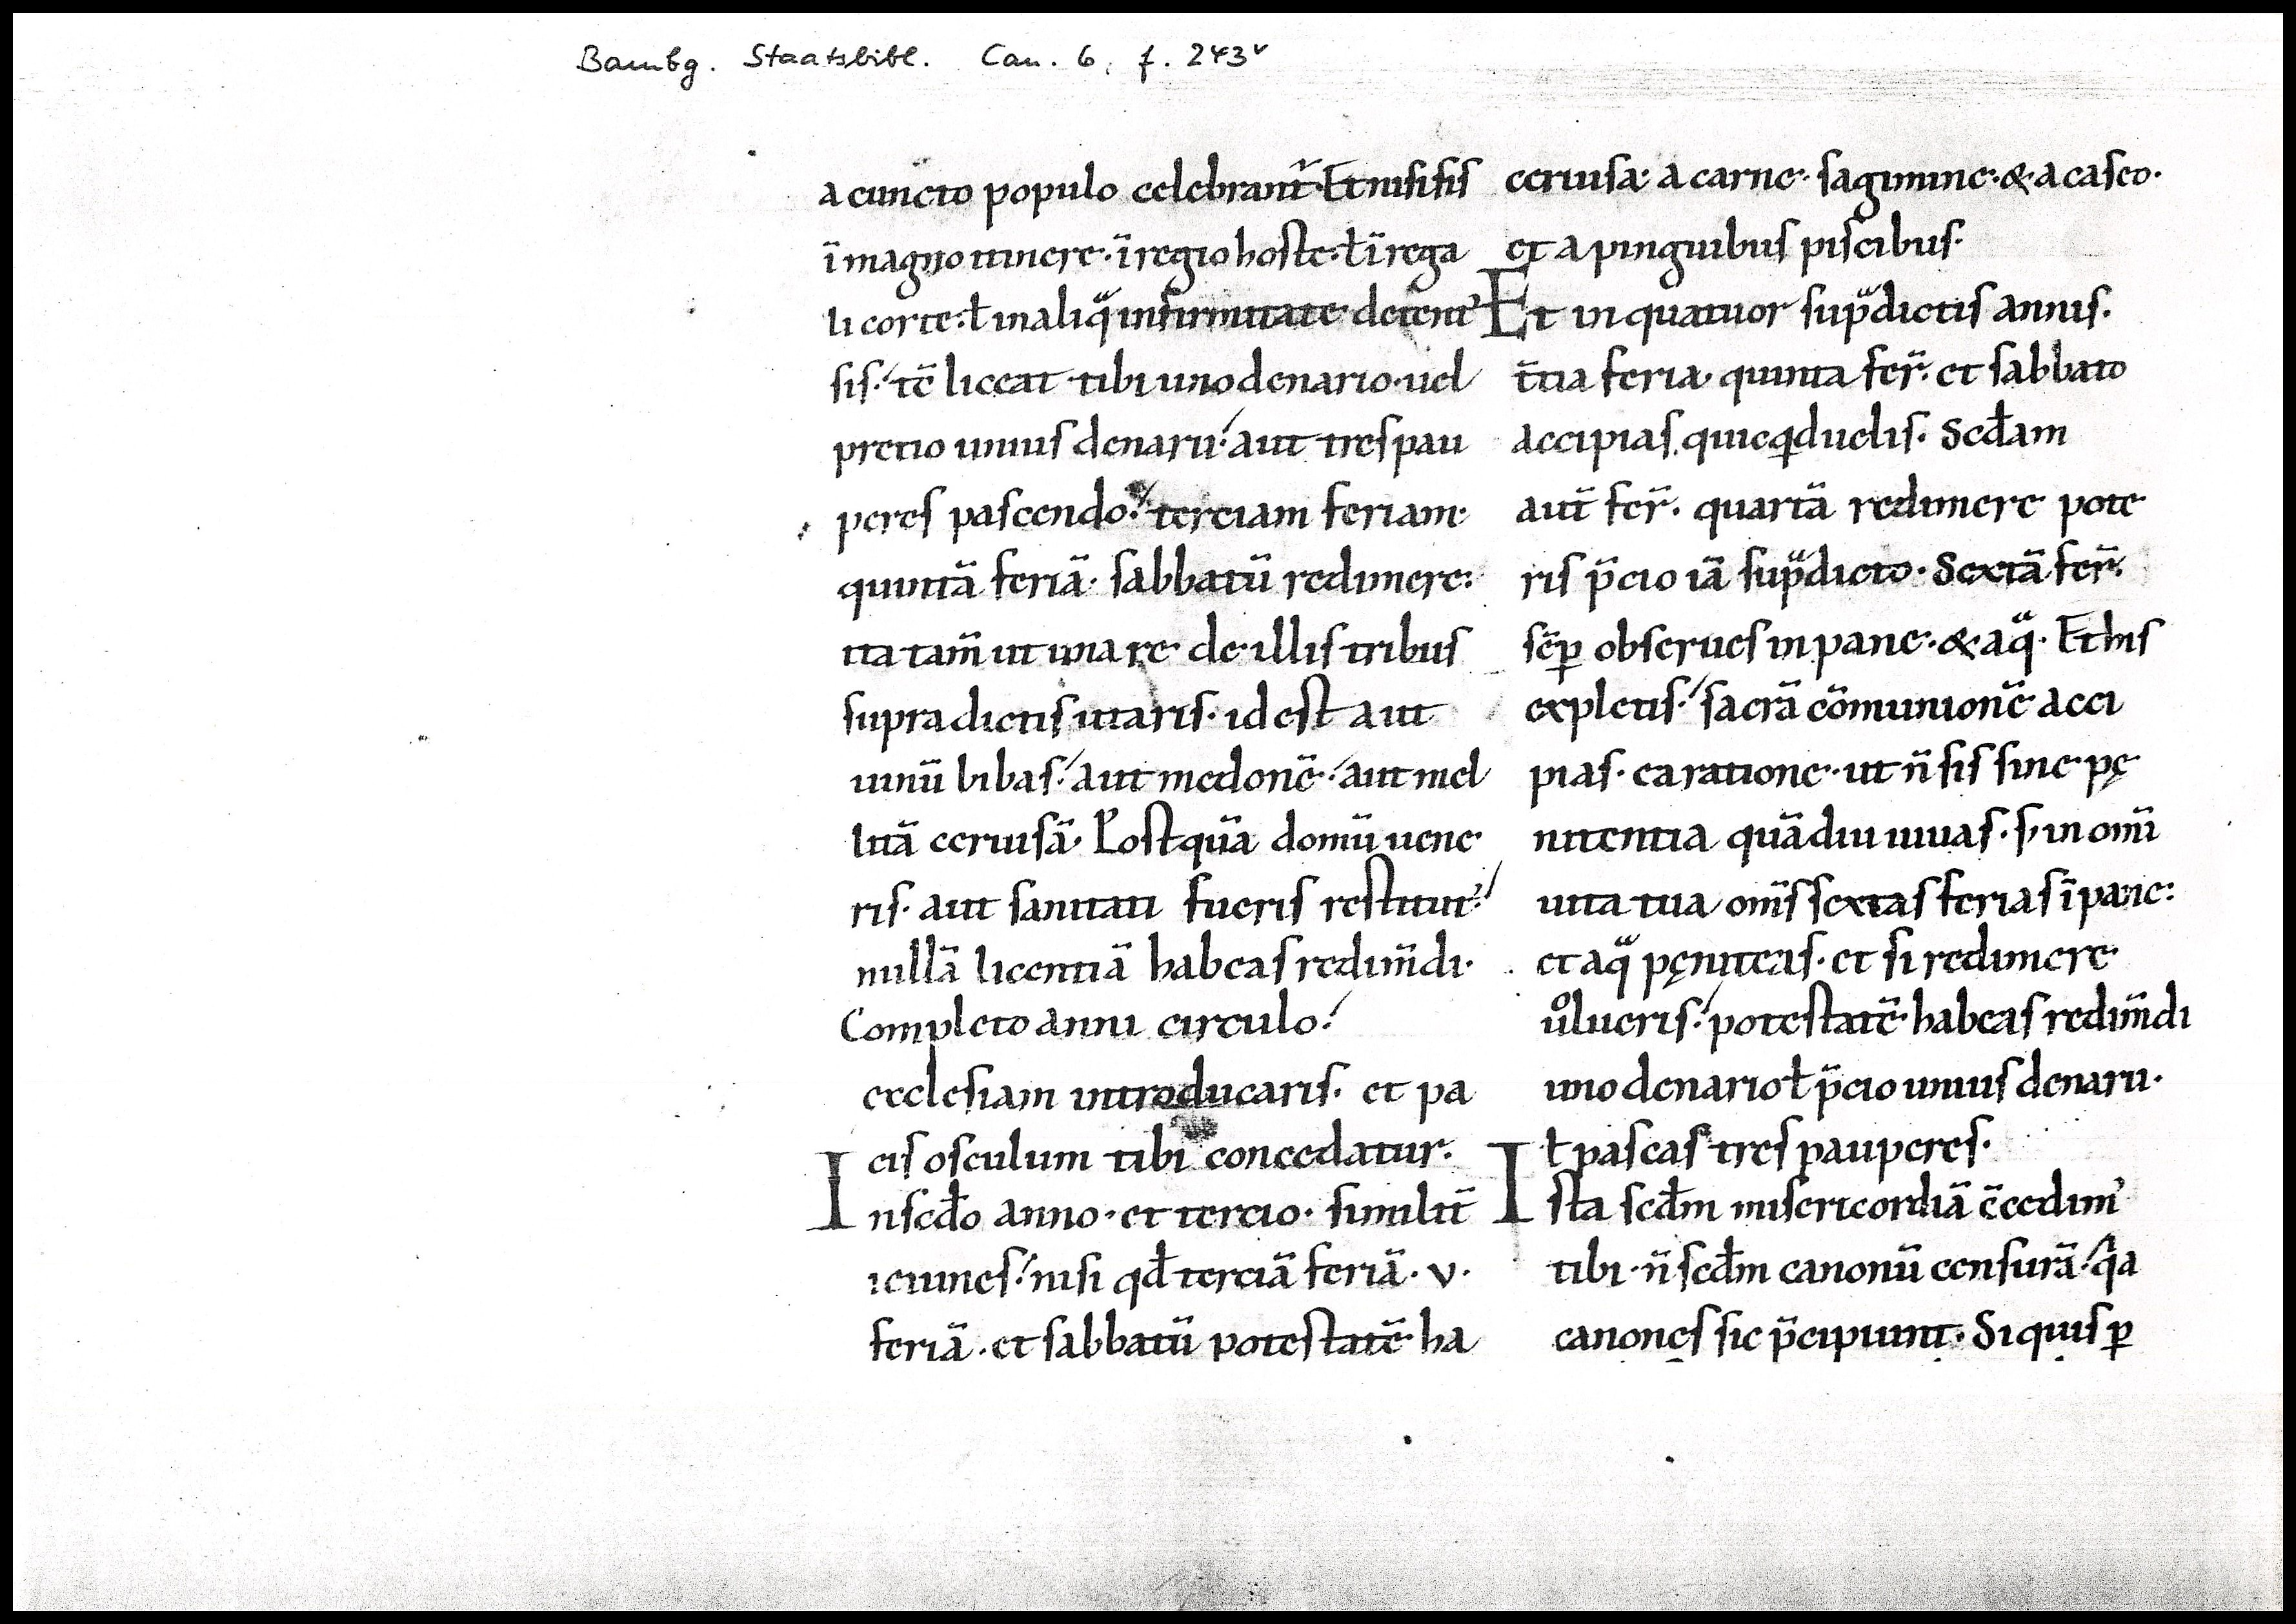 Bambg. Staatsbibl. Can. 6, f. 243v
a cuncto populo celebrant᷑. Et nisi sis
ī magno itinere. ī regio hoste. ł ī rega
li corte. ł in aliqͣ infirmitate detent᾽
sis. tc̄ liceat tibi uno denario. uel
precio unius denarii. aut tres pau
peres pascendo. terciam feriam.
quintā feriā. sabbatū redimere.
ita tam̄ ut una re de illis tribus
supradictis utaris. id est aut
uinū bibas. aut medonē. aut mel
litā ceruisā. Postquā domū uene
ris. aut sanitati fueris restitut᾽.
nullā licentiā habeas redim̄di.
Completo anni circulo.
ecclesiam introducaris. et pa
cis osculum tibi concedatur.
In scđo anno. et tercio. similit̄
ieiunes. nisi qđ terciā feriā. v.
feriā. et sabbatū potestatē ha
ceruisa. a carne. sagimine. & a caseo.
et a pinguibus piscibus.
Et in quatuor sup̃dictis annis.
t̄tia feria. quinta fer̄. et sabbato
accipias quicqͥd uelis. Scđam
aut̄ fer̄. quartā redimere pote
ris p̄cio iā sup̃dicto. Sextā fer̄.
sēꝑ obserues in pane. & aqͣ. Et his
expletis. sacrā cōmunionē acci
pias. ea ratione. ut n̄ sis sine pę
nitentia quādiu uiuas. s; in om̄i
uita tua om̄s sextas ferias ī pane.
et aqͣ pęniteas. et si redimere
uͦlueris. potestatē habeas redim̄di
uno denario ł p̄cio unius denarii.
ł pascas tres pauperes.
Ista scđm misericordiā c̄cedim᾽
tibi. n̄ scđm canonū censurā. qͥa
canones sic p̄cipiunt. Si quis ꝑ